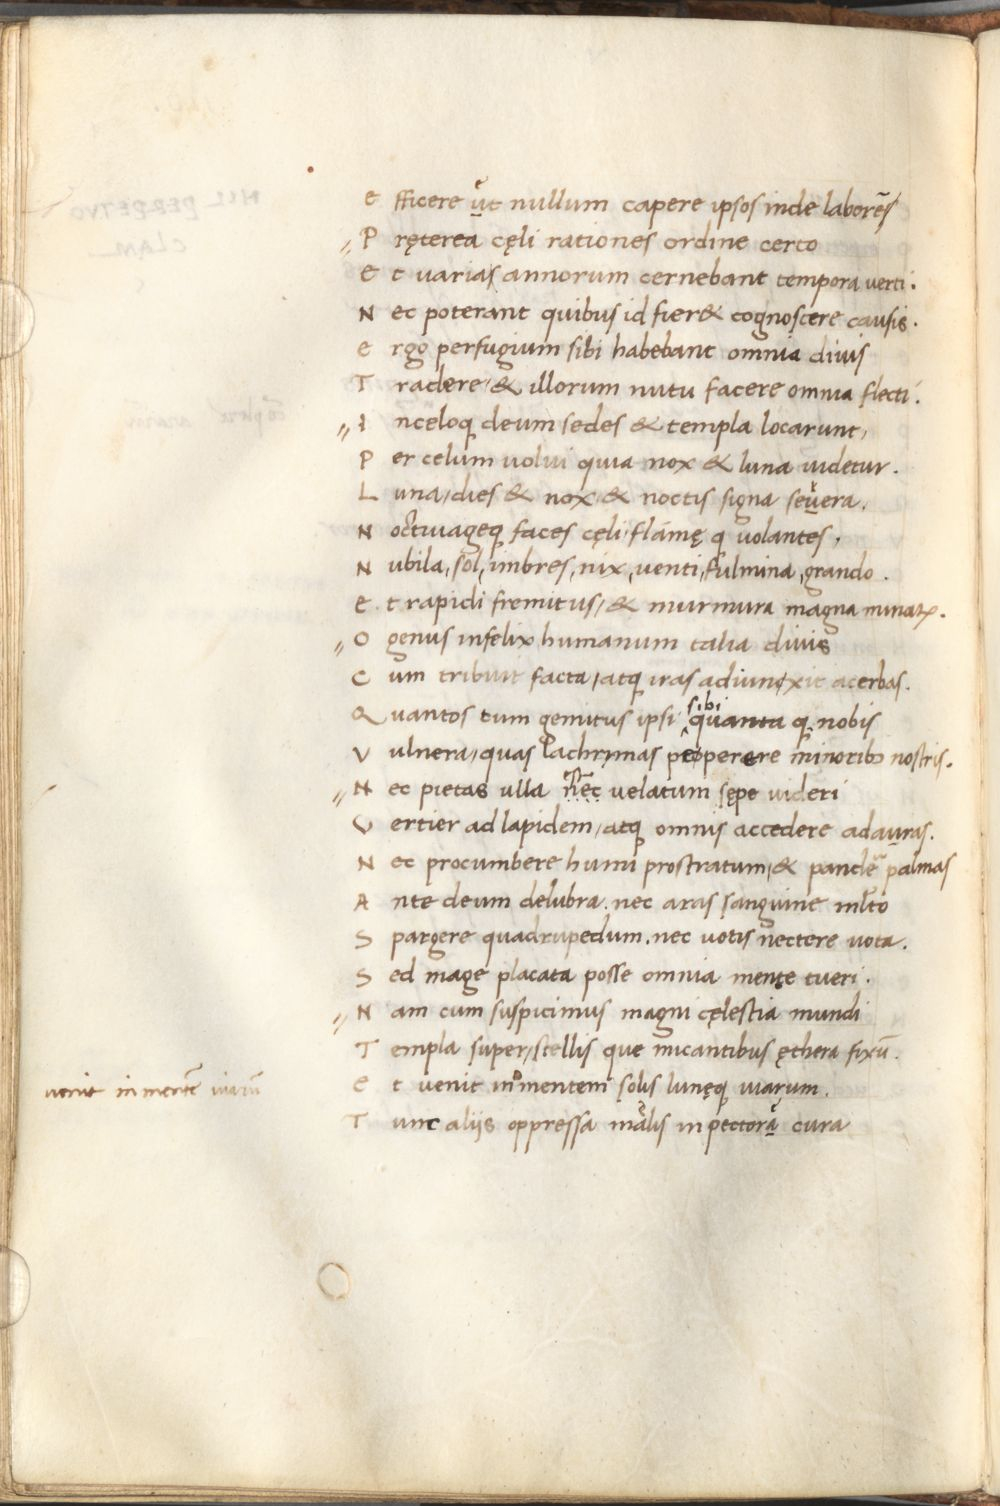 E fficere ut nullum capere ipsos inde laborẽs
P ręterea cęli rationes ordine certo
E t varias annorum cernebant tempora verti.
N ec poterant quibus id fier& cognoscere causis.
E rgo perfugium sibi habebant omnia divis
T radere / & illorum nutu facere omnia flecti.
I nceloq deum sedes & templa locarunt,
P er celum volui quia nox & luna videtur.
L una / dies & nox / & noctis signa severa,
N octivageq faces cęli / flámę q volantes,
N ubila, sol, imbres, nix, venti, fulmina, grando.
E t rapidi fremitus / & murmura magna minaꝝ.
O genus infelix humanum talia divis
C um tribuit facta / atq iras adiunxit acerbas.
Q uantos tum gemitus ipsi sibi quanta q nobis
V ulnera / quas lachrymas peperere minoribꝰ nostris.
N ec pietas ulla nec velatum sępe videri
V ertier ad lapidem / atq omnis accedere ad auras.
N ec procumbere humi prostratum / & pandere palmas
A nte deum delubra. nec aras sanguine mlto
S pargere quadrupedum. nec votis nectere vota.
S ed mage placata posse omnia mente tueri.
N am cum suspicimus magni cęlestia mundi
T empla super / stellis que micantibus ęthera fixũ.
venit in mentẽ viarũ
E t venit in mentem solis lunęq viarum.
T unc aliis oppressa malis in pectora cura